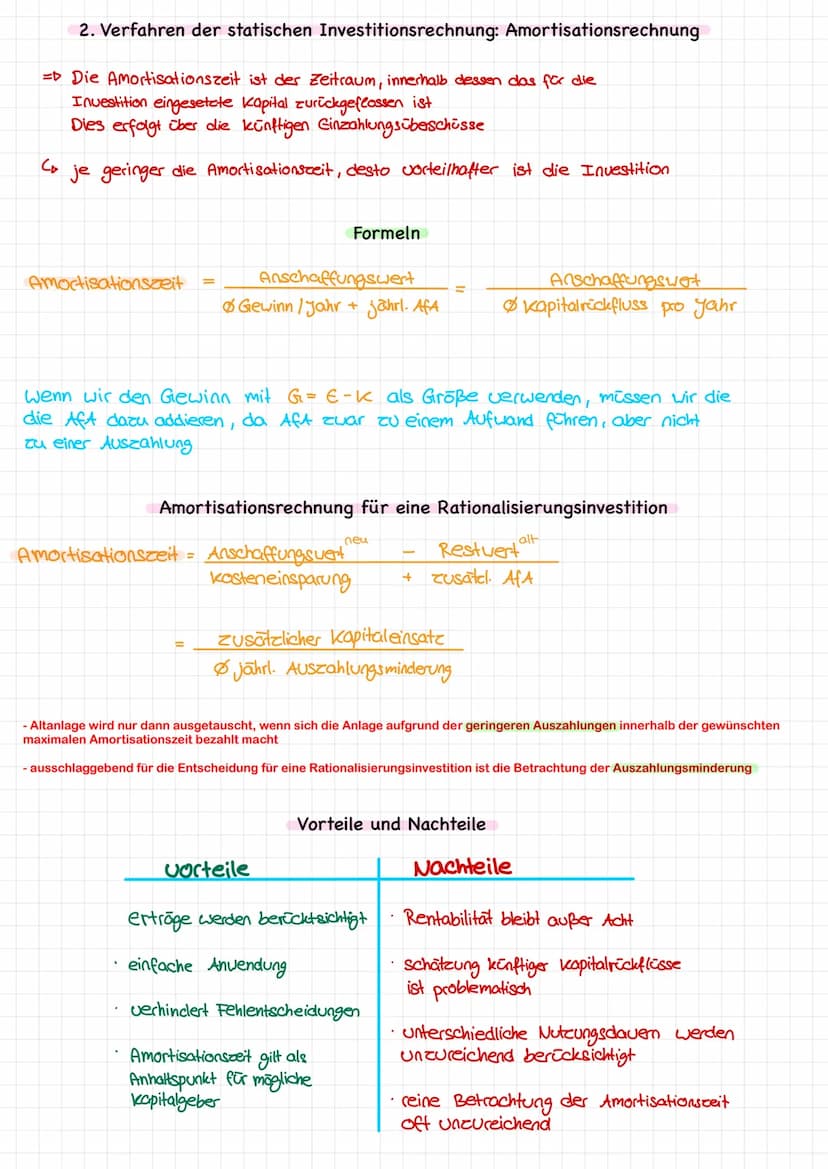 2. Verfahren der statischen Investitionsrechnung: Amortisationsrechnung
=> Die Amortisationszeit ist der Zeitraum, innerhalb dessen das für die
Investition eingesetzte Kapital zurückgeflossen ist
Dies erfolgt über die künftigen Einzahlungsüberschüsse
↳ je geringer die Amortisationszeit, desto vorteilhafter ist die Investition
Formeln
Amortisationszeit = Anschaffungswert / Ø Gewinn / Jahr + jährl. AfA = Anschaffungswet / Ø Kapitalrückfluss pro Jahr
Wenn wir den Gewinn mit G = E - K als Größe verwenden, müssen wir die
die AfA dazu addieren, da AfA zwar zu einem Aufwand führen, aber nicht
zu einer Auszahlung
Amortisationsrechnung für eine Rationalisierungsinvestition
Amortisationszeit = Anschaffungswert neu - Restwert alt
Kosteneinsparung + zusätzl. AfA
= zusätzlicher Kapitaleinsatz
Ø jährl. Auszahlungsminderung
- Altanlage wird nur dann ausgetauscht, wenn sich die Anlage aufgrund der geringeren Auszahlungen innerhalb der gewünschten
maximalen Amortisationszeit bezahlt macht
- ausschlaggebend für die Entscheidung für eine Rationalisierungsinvestition ist die Betrachtung der Auszahlungsminderung
Vorteile und Nachteile
Vorteile
erträge werden berücktsichtigt
· einfache Anwendung
· verhindert Fehlentscheidungen
· Amortisationszeit gilt als
Anhaltspunkt für mögliche
Kapitalgeber
Nachteile
· Rentabilität bleibt außer Acht
· schätzung künftiger Kapitalrückflüsse
ist problematisch
· unterschiedliche Nutzungsdauern werden
unzureichend berücksichtigt
· reine Betrachtung der Amortisationszeit
oft unzureichend